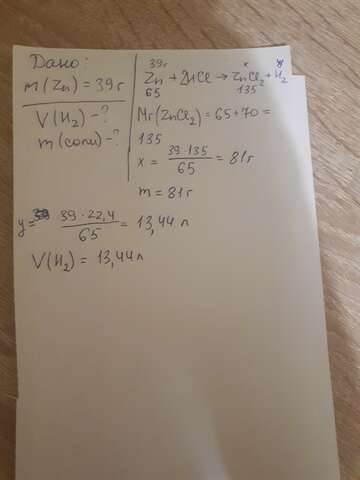 Дано:
m(Zn) = 39г
V(H₂) - ?
m(соли) - ?
39г x y
Zn + 2HCl → ZnCl₂ + H₂
65 135
Mr(ZnCl₂) = 65 + 70 =
135
x = 39·135 / 65 = 81г
m = 81г
y = 39·22,4 / 65 = 13,44 л
V(H₂) = 13,44 л